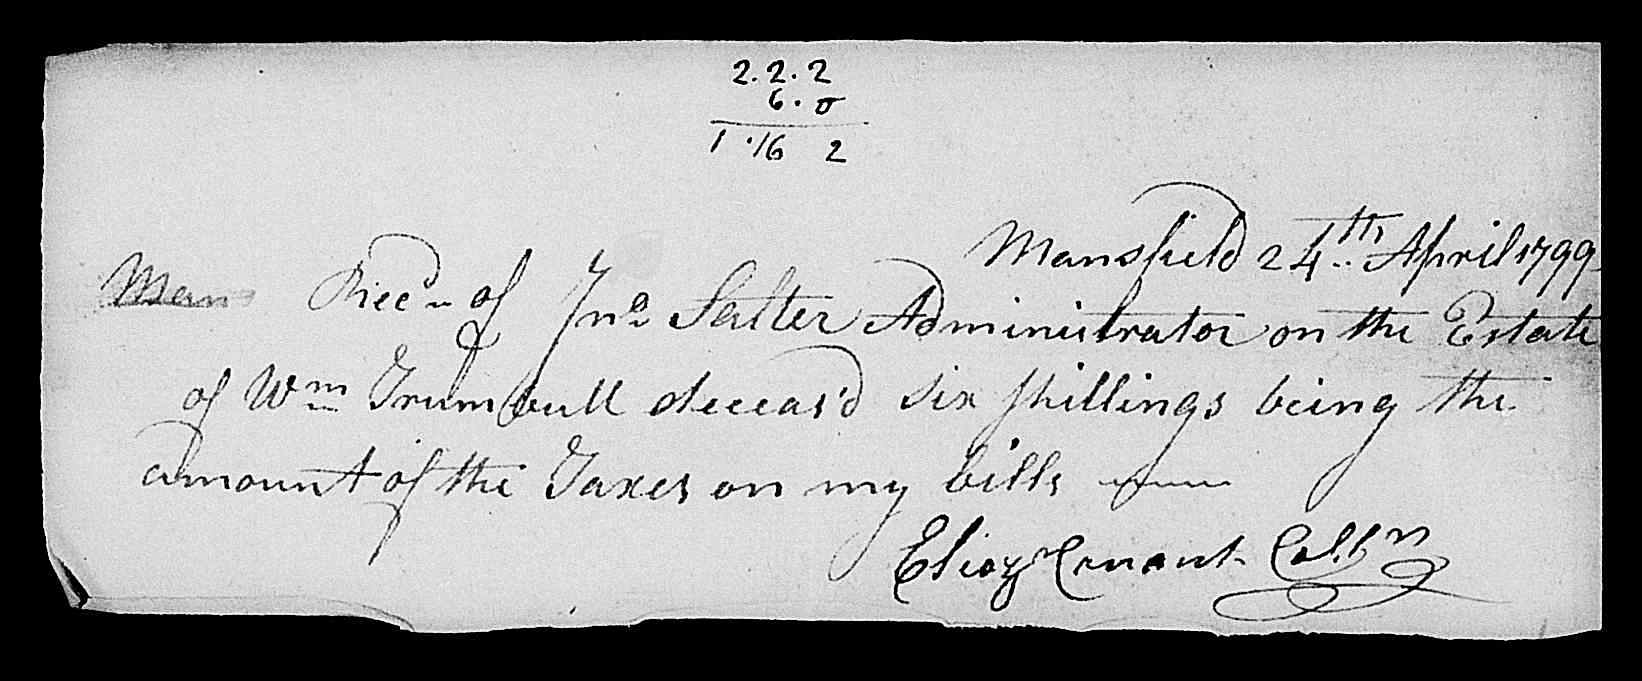 2.2.2
6.0
1.16 2
Mansfield 24th.. April 1799
Man Rec'd of Jno Salter Administrator on the Estate
of Wm Trumbull deceas'd six shillings being the
amount of the Taxes on my bills
Conant